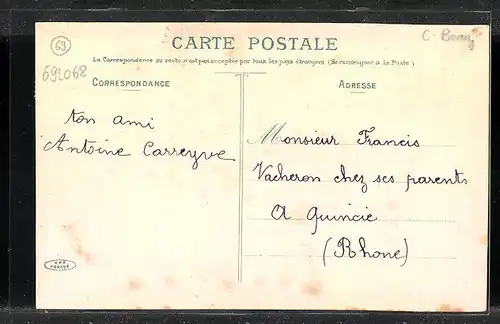 69
C. Beauj
CARTE POSTALE
La Correspondance au recto n'est pas acceptée par tous les pays étrangers (Se renseigner à la Poste)
692068
CORRESPONDANCE
ADRESSE
ton ami
Antoine Carreyve
Monsieur Francis
Vacheron chez ses parents
A Quincie
(Rhone)